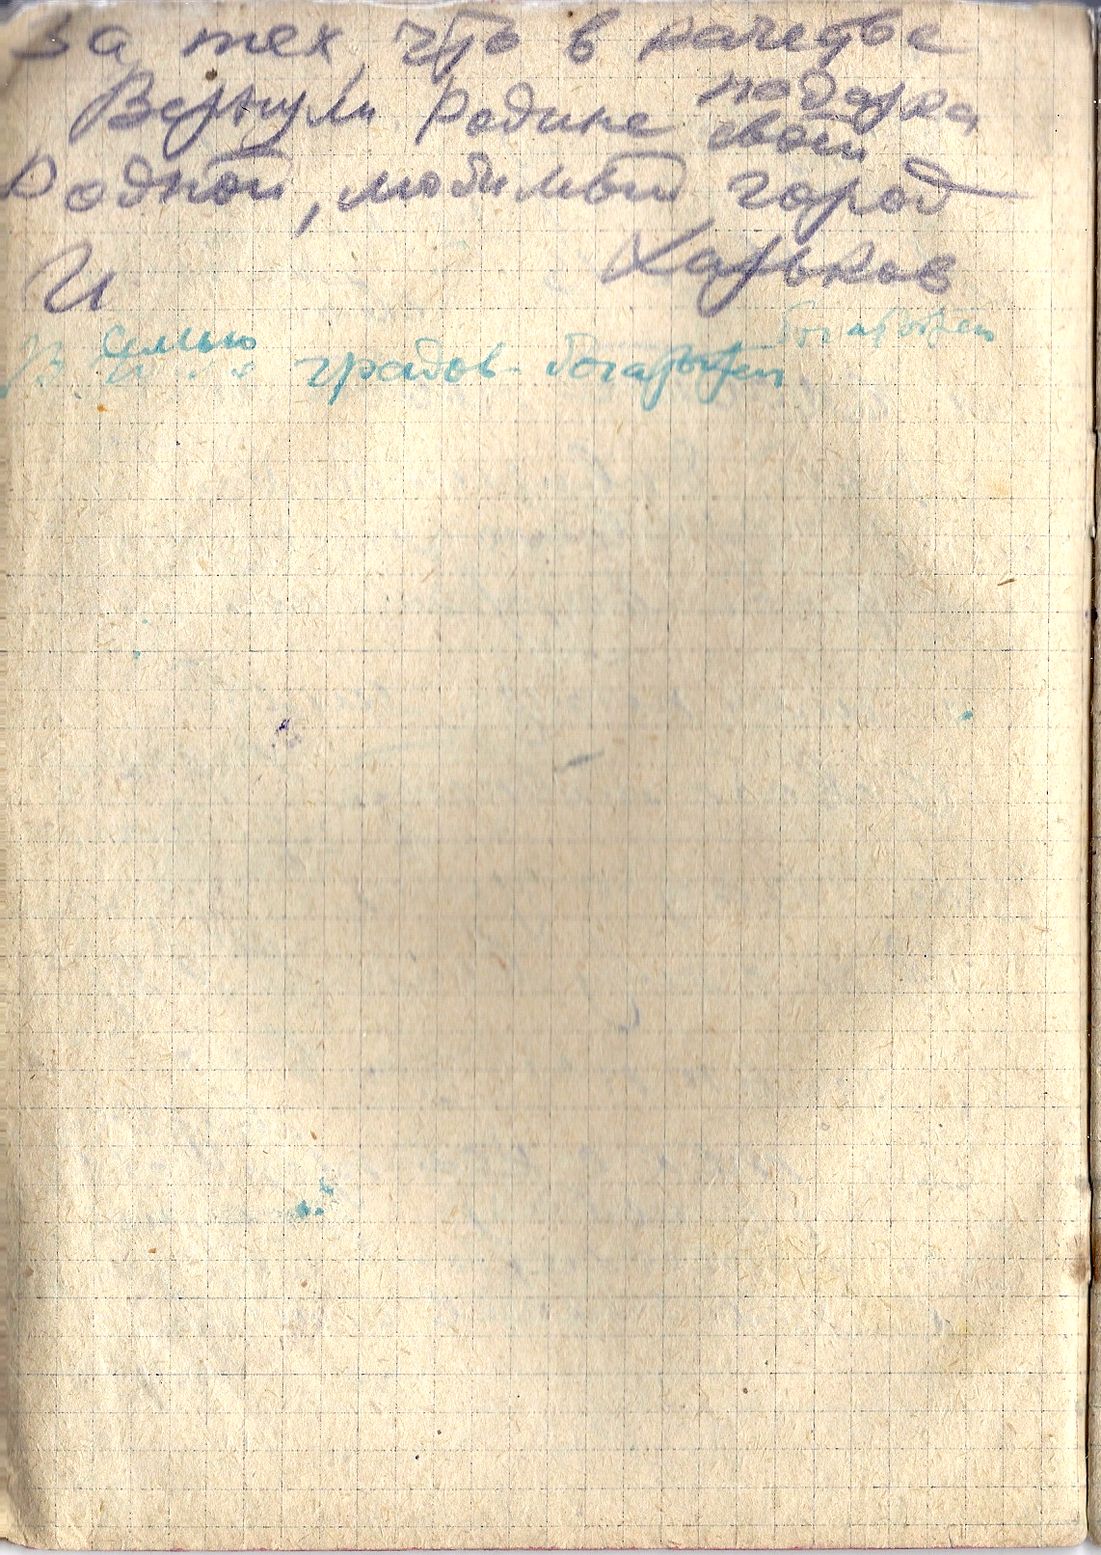 За тех, что в качестве
подарка
Вернули Родине свой
Родной, любимый город
И Харьков
богатырей
В семью градов-богатырей